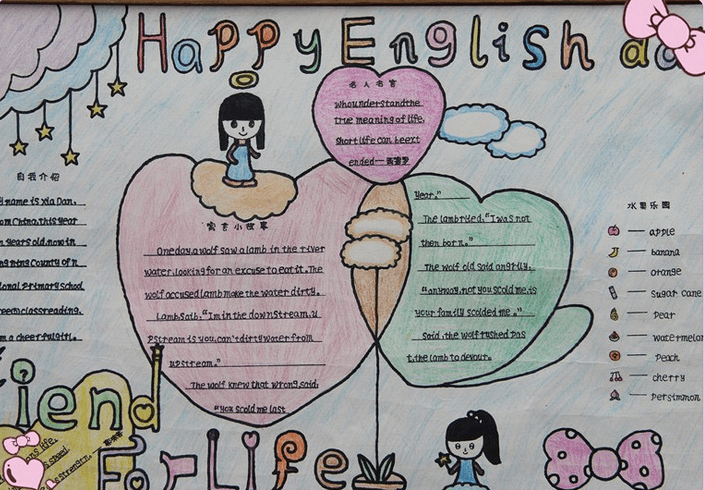 Happy English
名人名言
Whounderstandthe
true meaning of life,
Short life can beext
ended—西塞罗
自我介绍
y name is Xia Dan.
om China.this year
n years old.now in
ning County of n
ional primary school
reenclassreading.
m a cheerfulgirl.
寓言小故事
Oneday.awolf saw a lamb in the river
water.looking for an excuse to eat it. The
wolf accused lamb make the water dirty.
Lambsaib."Im in the downstream.u
Pstream is you.can'tdirtywater from
upstream."
The wolf knew that wrong.said:
"you scold me last
year."
The lambtried."I was not
then born."
The wolf old said angrily.
"anyway.not you scold me.is
your family scolded me."
Said .the wolf rushed pas
t.the lamb to devour.
水果乐园
apple
banana
orange
Sugar cane
Pear
watermelon
Peach
cherry
Persimmon
iend
For Life
ans life.
speed.
sstrength.